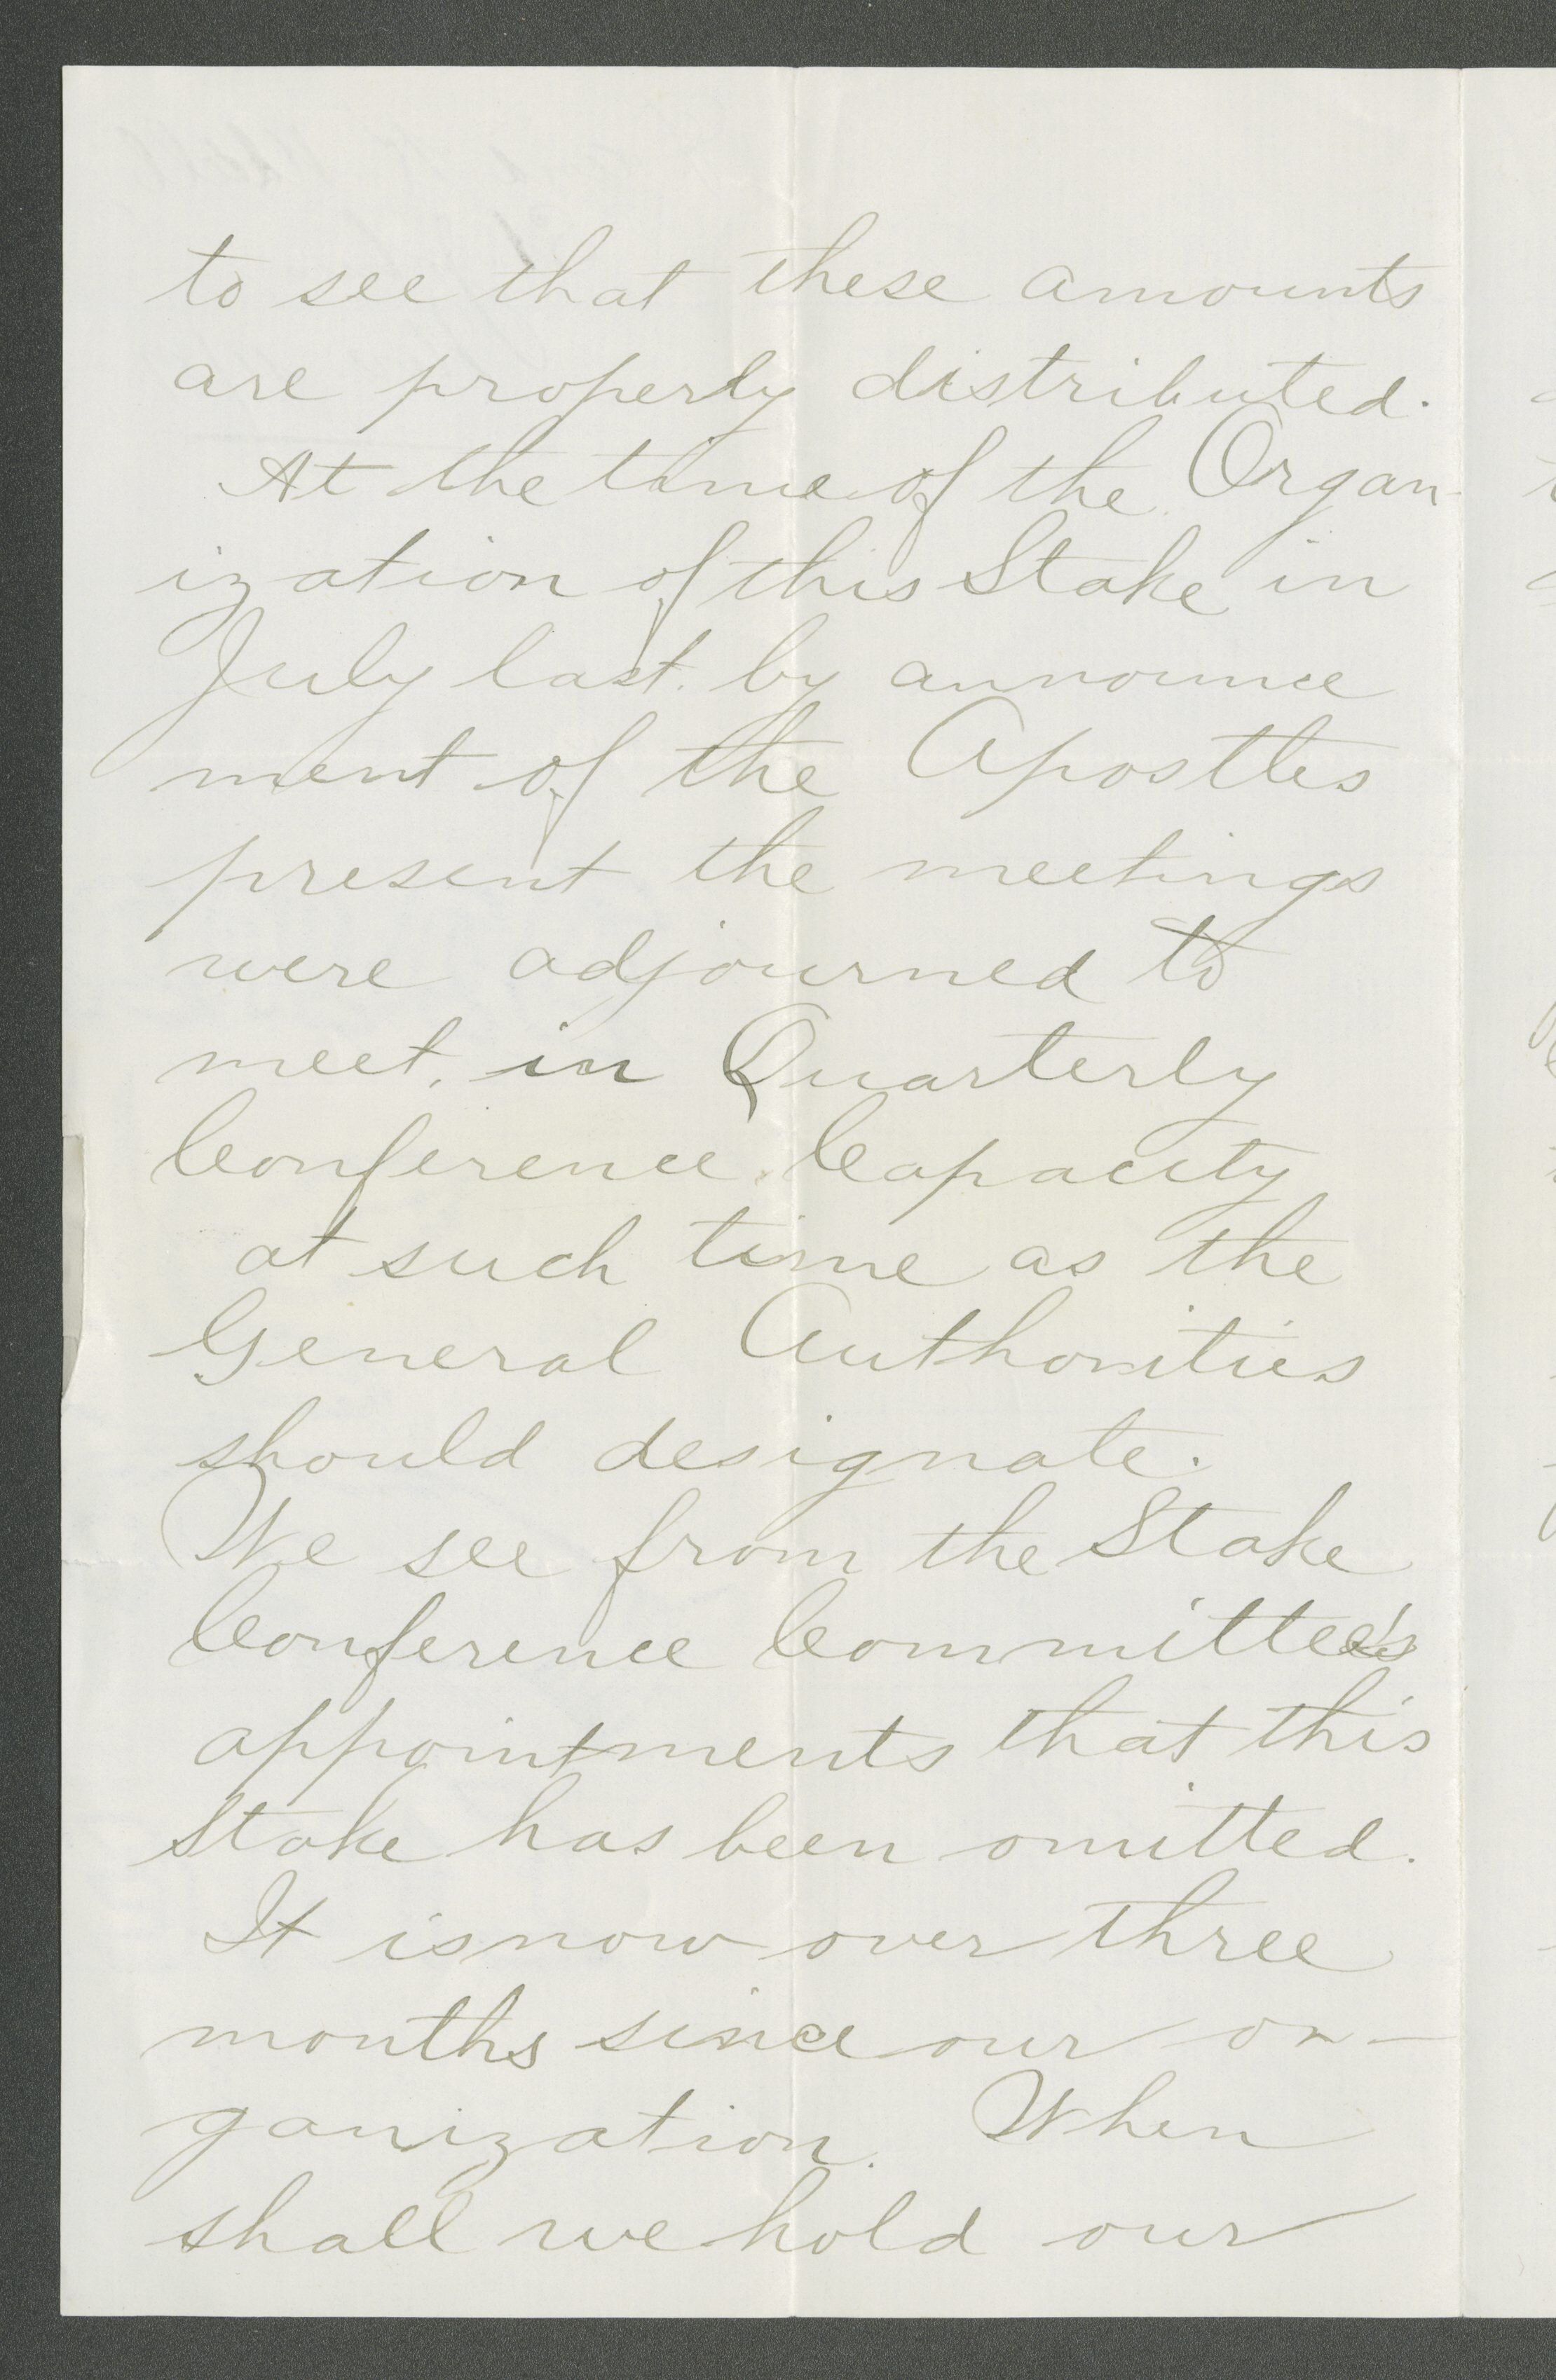 to see that these amounts
are properly distributed.
At the time of the Organ-
ization of this Stake in
July last. by announce
ment of the Apostles
present the meetings
were adjourned to
meet. in Quarterly
Conference Capacity
at such time as the
General Authorities
should designate.
We see from the Stake
Conference Committee's
appointments that this
Stake has been omitted.
It is now over three
months since our or-
ganization. When
shall we hold our